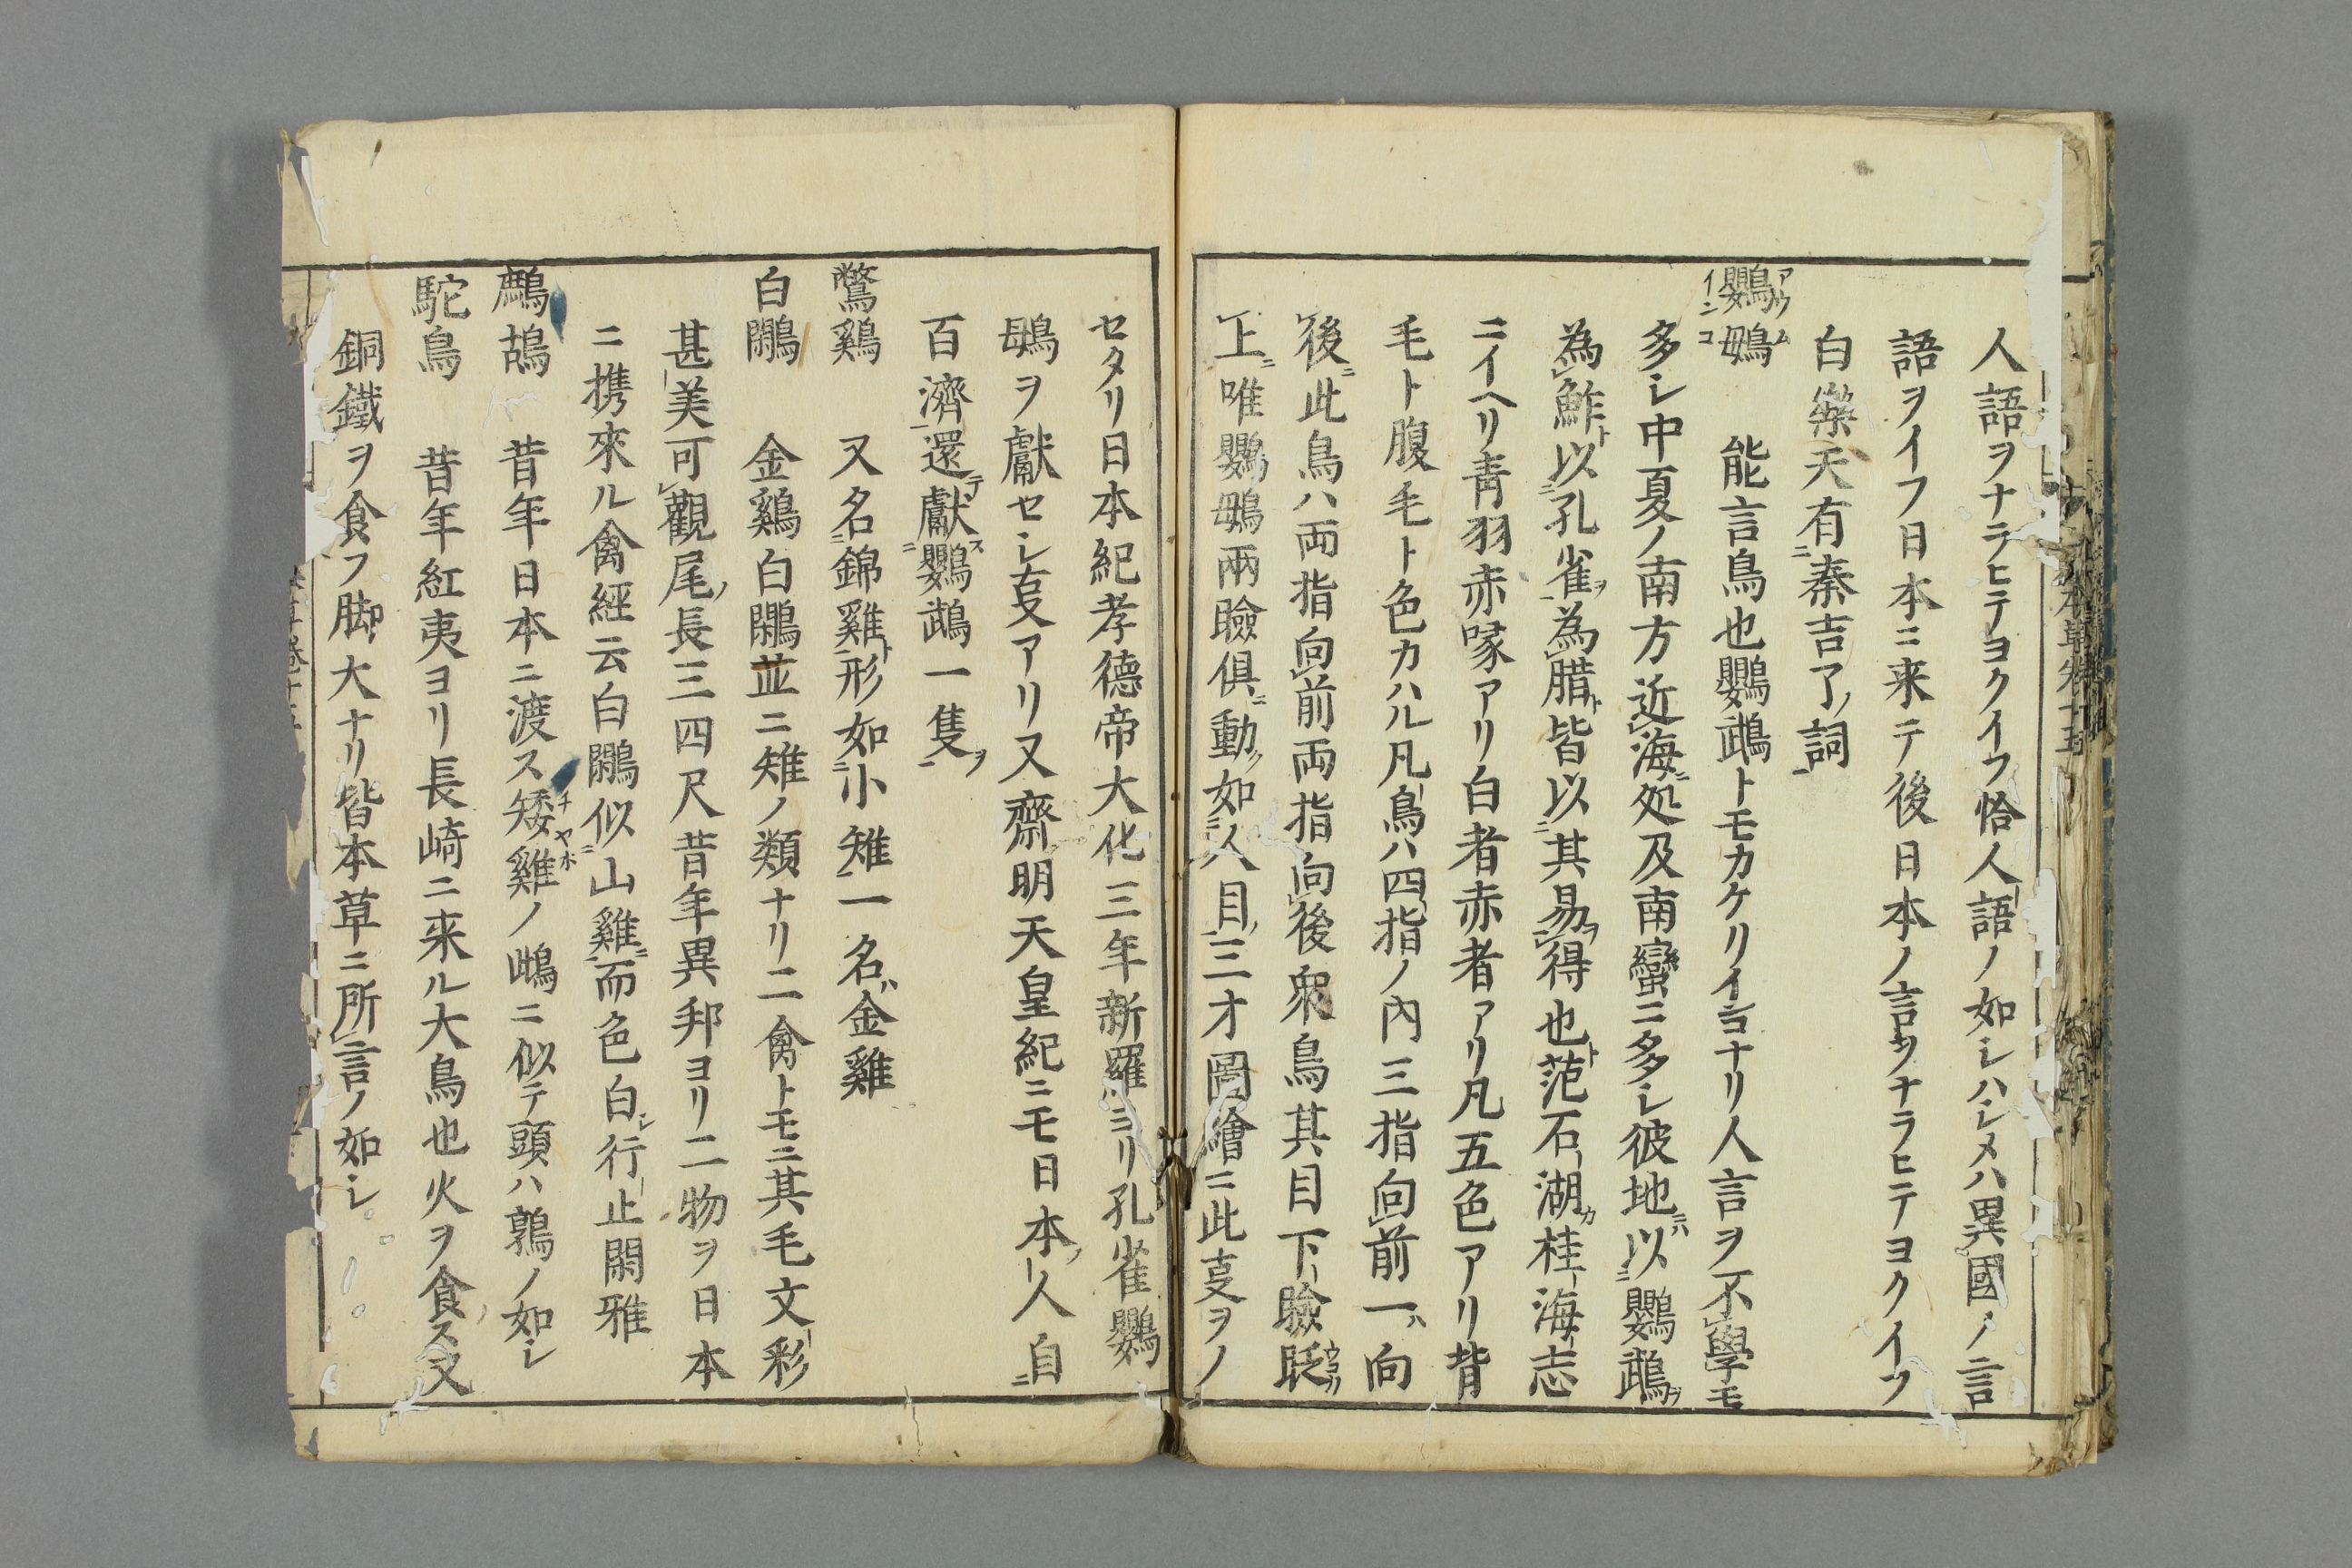 人語ヲナラヒテヨクイフ恰人語ノ如シハシメハ異國ノ言
語ヲイフ日本ニ来テ後日本ノ言ヲナラヒテヨクイフ
白樂天有秦吉了詞
鸚䳇 能言鳥也鸚鵡トモカケリインコナリ人言ヲ不學モ
多シ中夏ノ南方近海処及南蠻ニ多シ彼地以鸚鵡
為鮓以孔雀為腊皆以其易得也范石湖桂海志
ニイヘリ青羽赤喙アリ白者赤者アリ凡五色アリ背
毛ト腹毛ト色カハル凡鳥ハ四指ノ內三指向前一向
後此鳥ハ両指向前両指向後衆鳥其目下瞼眨
上唯鸚䳇兩瞼俱動如人目三才圖繪ニ此支ヲノ
セタリ日本紀孝德帝大化三年新羅ヨリ孔雀鸚
䳇ヲ獻セシ支アリ又齋明天皇紀ニモ日本人自
百濟還獻鸚鵡一隻
鷩鷄 又名錦雞形如小雉一名金雞
白鷴 金鷄白鷴並ニ雉ノ類ナリ二禽トモニ其毛文彩
甚美可觀尾長三四尺昔年異邦ヨリ二物ヲ日本
ニ携來ル禽經云白鷴似山雞而色白行止閑雅
鷓鴣 昔年日本ニ渡ス矮雞ノ雌ニ似テ頭ハ鶉ノ如シ
駝鳥 昔年紅夷ヨリ長崎ニ来ル大鳥也火ヲ食ス又
銅鐵ヲ食フ脚大ナリ皆本草ニ所言ノ如シ